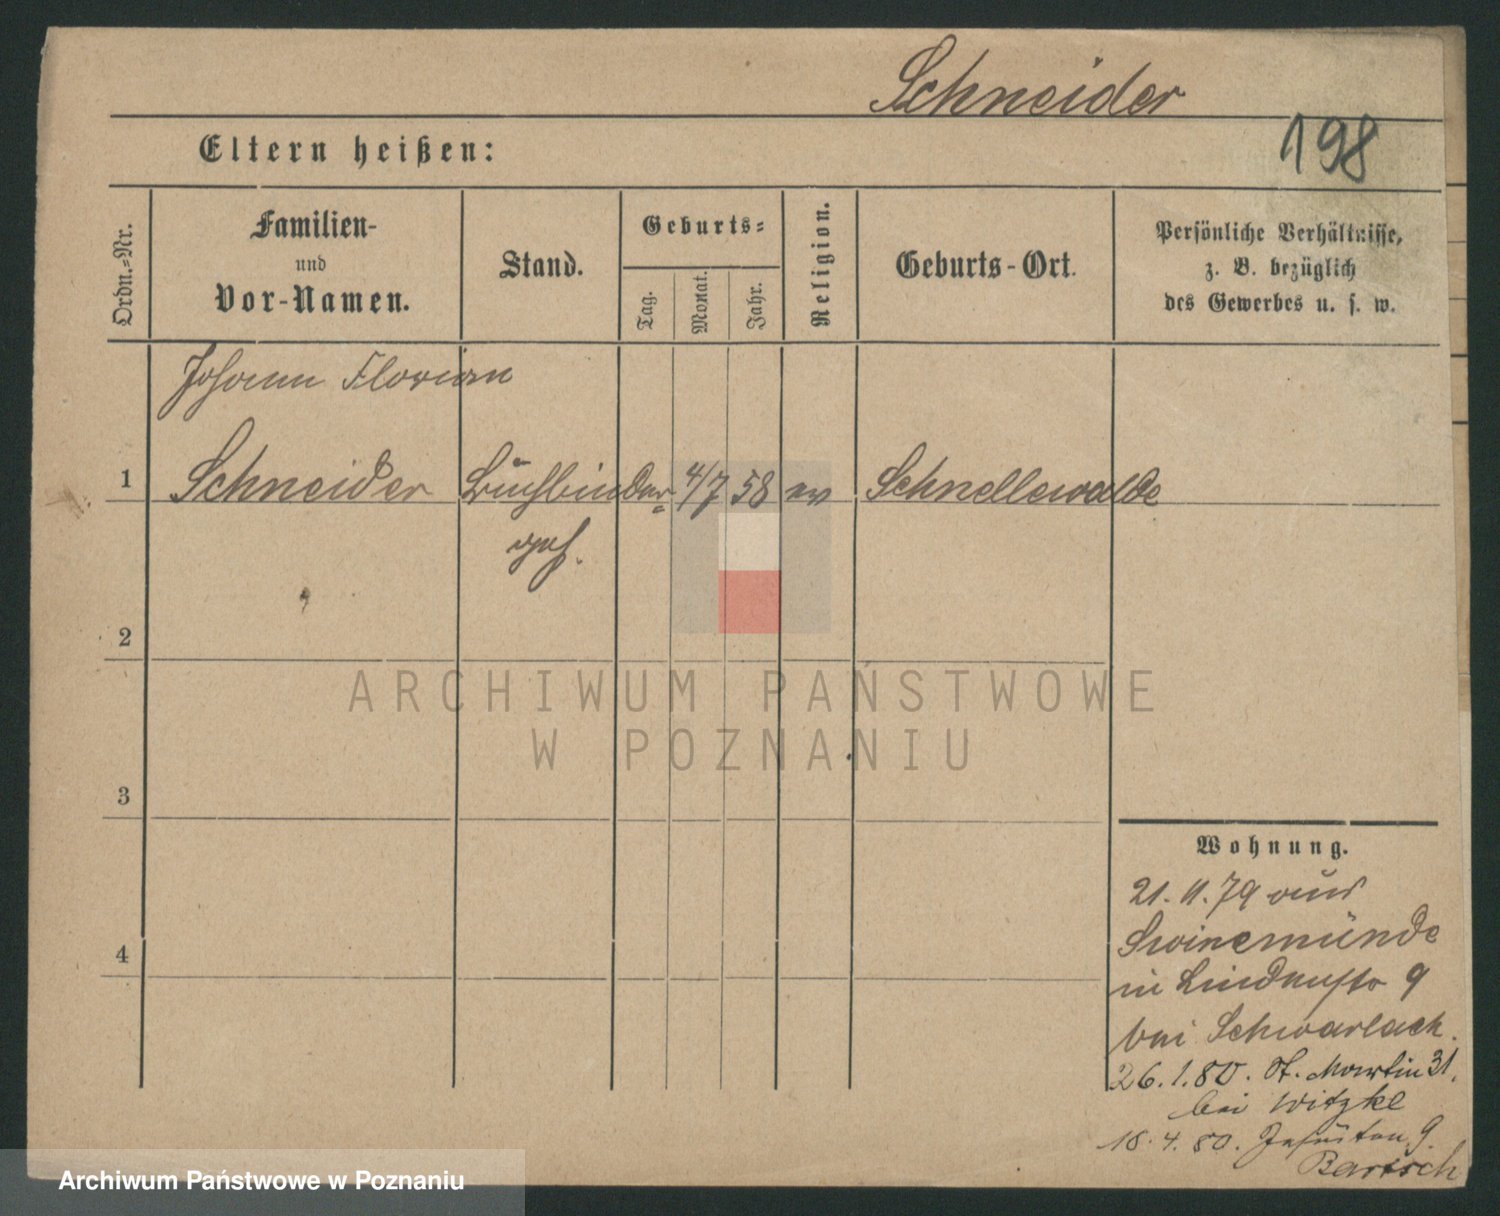 Schneider
198
Eltern heißen:
Ordn.-Nr.
Familien-
und
Vor-Namen.
Stand.
Geburts-
Tag.
Monat.
Jahr.
Religion.
Geburts-Ort.
Persönliche Verhältnisse,
z. B. bezüglich
des Gewerbes u. s. w.
Johann Florian
1 Schneider Buchbinder= 4/7 58 ev Schnellewalde
geh.
2
ARCHIWUM PAŃSTWOWE
W POZNANIU
3
Wohnung.
21. 11. 79 aus
Swinemünde
4
in Lindenstr 9
bei Schwarlack.
26. 1. 80. St. Martin 31.
bei Witzke
18. 4. 80. Jesuiten 9.
Bartsch
Archiwum Państwowe w Poznaniu